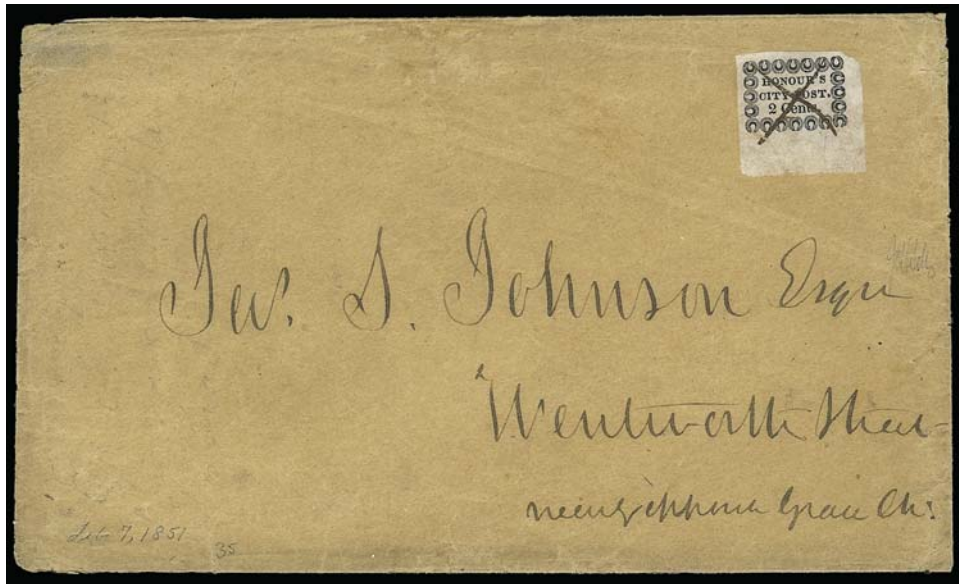 HONOUR'S
CITY POST.
2 Cents.
Jas. S. Johnson Esqr
Wentworth Street
Grace Ch:
Feb 7, 1851
35